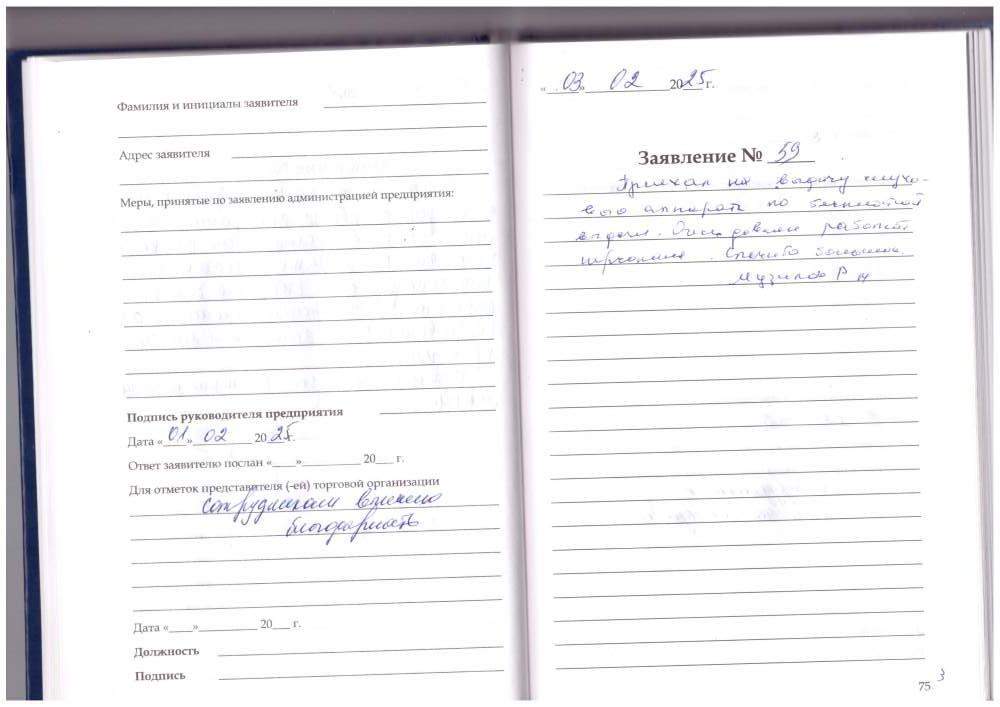 Фамилия и инициалы заявителя
Адрес заявителя
Меры, принятые по заявлению администрацией предприятия:
Подпись руководителя предприятия
Дата «01» 02 2025г.
Ответ заявителю послан «___»__________ 20___ г.
Для отметок представителя (-ей) торговой организации
сотрудникам
благодарность
Дата «____»__________ 20___ г.
Должность
Подпись
«03» 02 2025г.
Заявление № 59
Приехал на выдачу слухо-
вого аппарата по бесплатной
выдачи. Очень доволен работой
Спасибо
75
3